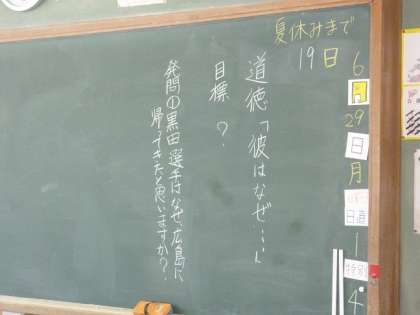 夏休みまで
19日
6
月
29
日
月
日直
1
4
道徳「彼はなぜ…」
目標 ?
発問①黒田選手はなぜ広島に
帰ってきたと思いますか?